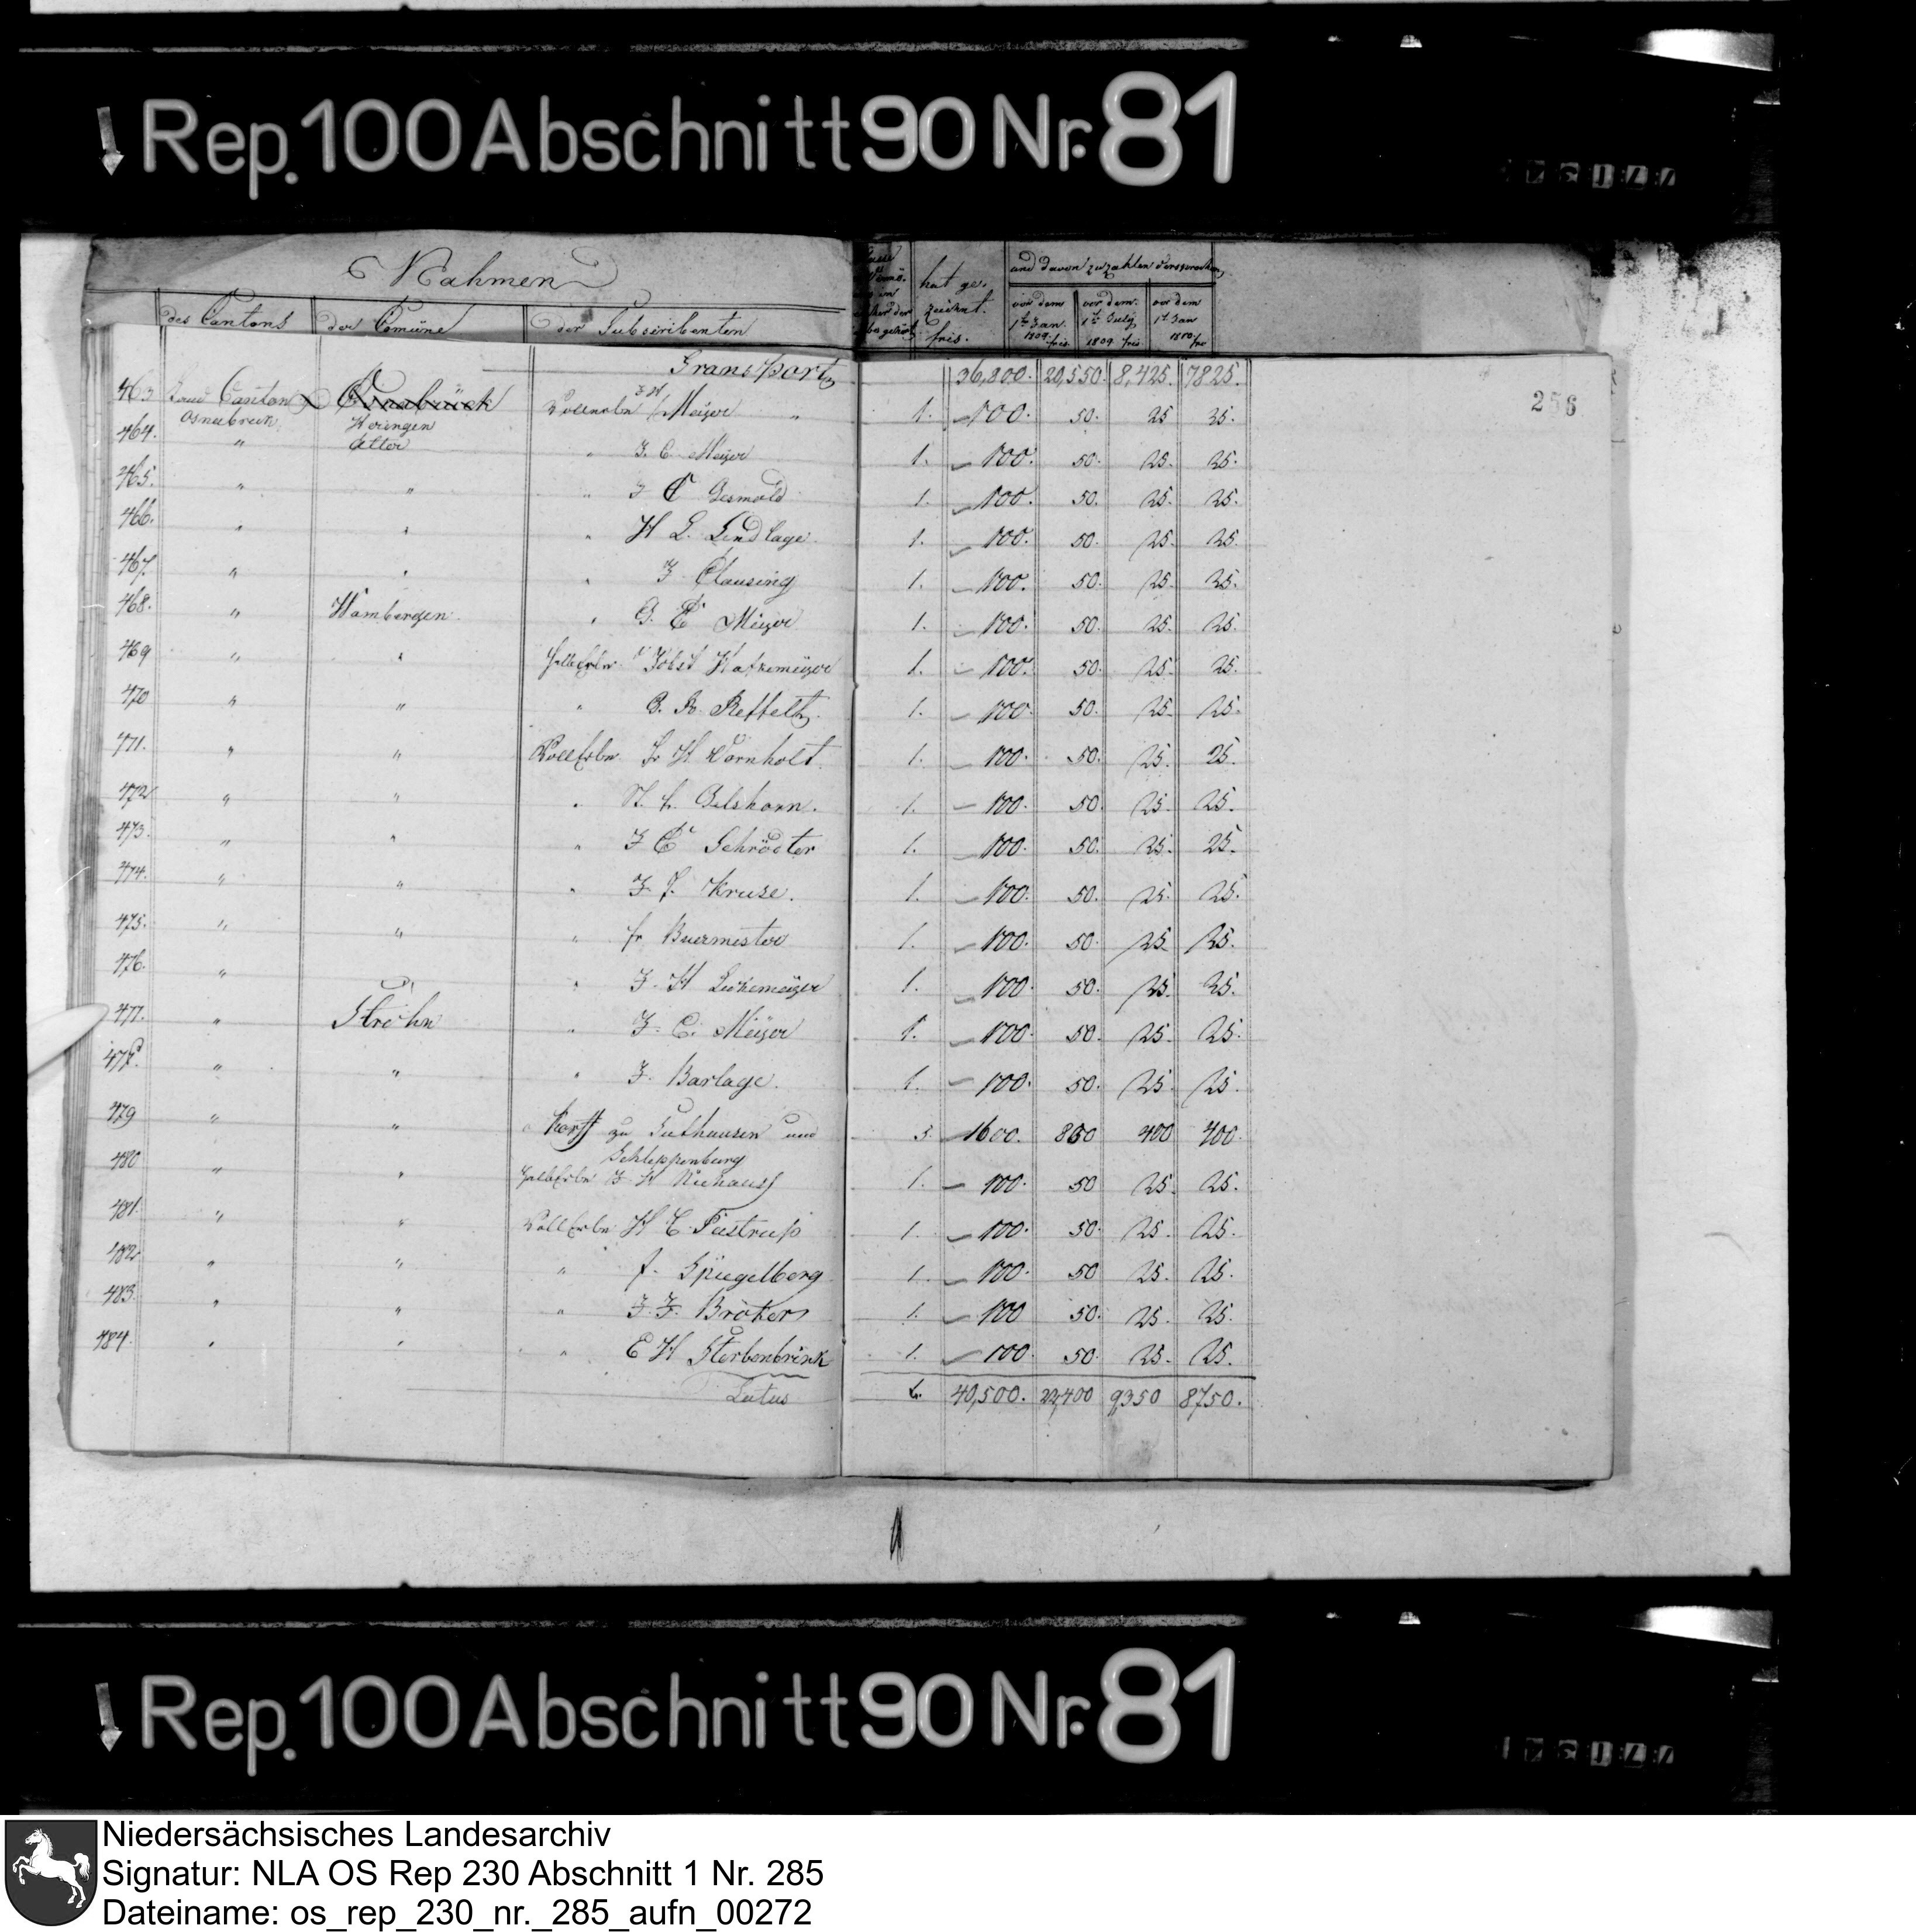 Rep. 100 Abschnitt 90 Nr. 81
Nahmen
des Cantons der Comüne der Subscribenten hat ge- zeichnet. frcs. und davon zu zahlen versprochen
vor dem 1t Jan. 1809 frcs vor dem 1t July 1809 frcs vor dem 1t Jan 1810 frc
256
Transport 36,800. 20,550. 8,425. 7825.
463 Land Canton Osnabrück Osnabrück Vollerbe J H Meijer " 1. 100. 50. 25 25.
464. " Atter " J. C. Meijer 1. 100. 50. 25. 25.
465. " " " J C Gesmold 1. 100. 50. 25. 25.
466. " " " H L. Lindlage 1. 100. 50. 25. 25.
467. " " " J Clausing 1. 100. 50. 25. 25.
468. " Hambergen " G. C Meijer 1. 100. 50. 25. 25.
469 " " Halberbe Jobst 1. 100. 50. 25. 25.
470 " " " 1. 100. 50. 25. 25.
471. " " Vollerbe Fr H Vornholt 1. 100. 50. 25. 25.
472 " " " 1. 100. 50. 25. 25.
473. " " " J C Schröeter 1. 100. 50. 25. 25.
474. " " " J. F. Kruse. 1. 100. 50. 25. 25.
475. " " " fr Buermester 1. 100. 50. 25 25.
476. " " J. H 1. 100. 50. 25. 25.
477. " Ströhn " J. C. Meijer 1. 100. 50. 25. 25.
478 " " " J. Barlage. 1. 100. 50. 25. 25.
479 " " Korff zu Suthausen und 3. 1600. 800 400 400.
Schleppenburg
480 " " Halberbe J H Niehauss 1. 100. 50 25. 25.
481. " " Vollerbe H C Fastrup 1. 100. 50. 25. 25.
482 " " " f. Spiegelberg 1. 100. 50 25. 25.
483. " " " J. F. Bröker 1. 100 50. 25. 25.
484. " " " E H Sterbenbrink 1. 100. 50. 25. 25.
Latus 40,500. 22,400 9,350 8750.
Rep. 100 Abschnitt 90 Nr. 81
Niedersächsisches Landesarchiv
Signatur: NLA OS Rep 230 Abschnitt 1 Nr. 285
Dateiname: os_rep_230_nr._285_aufn_00272